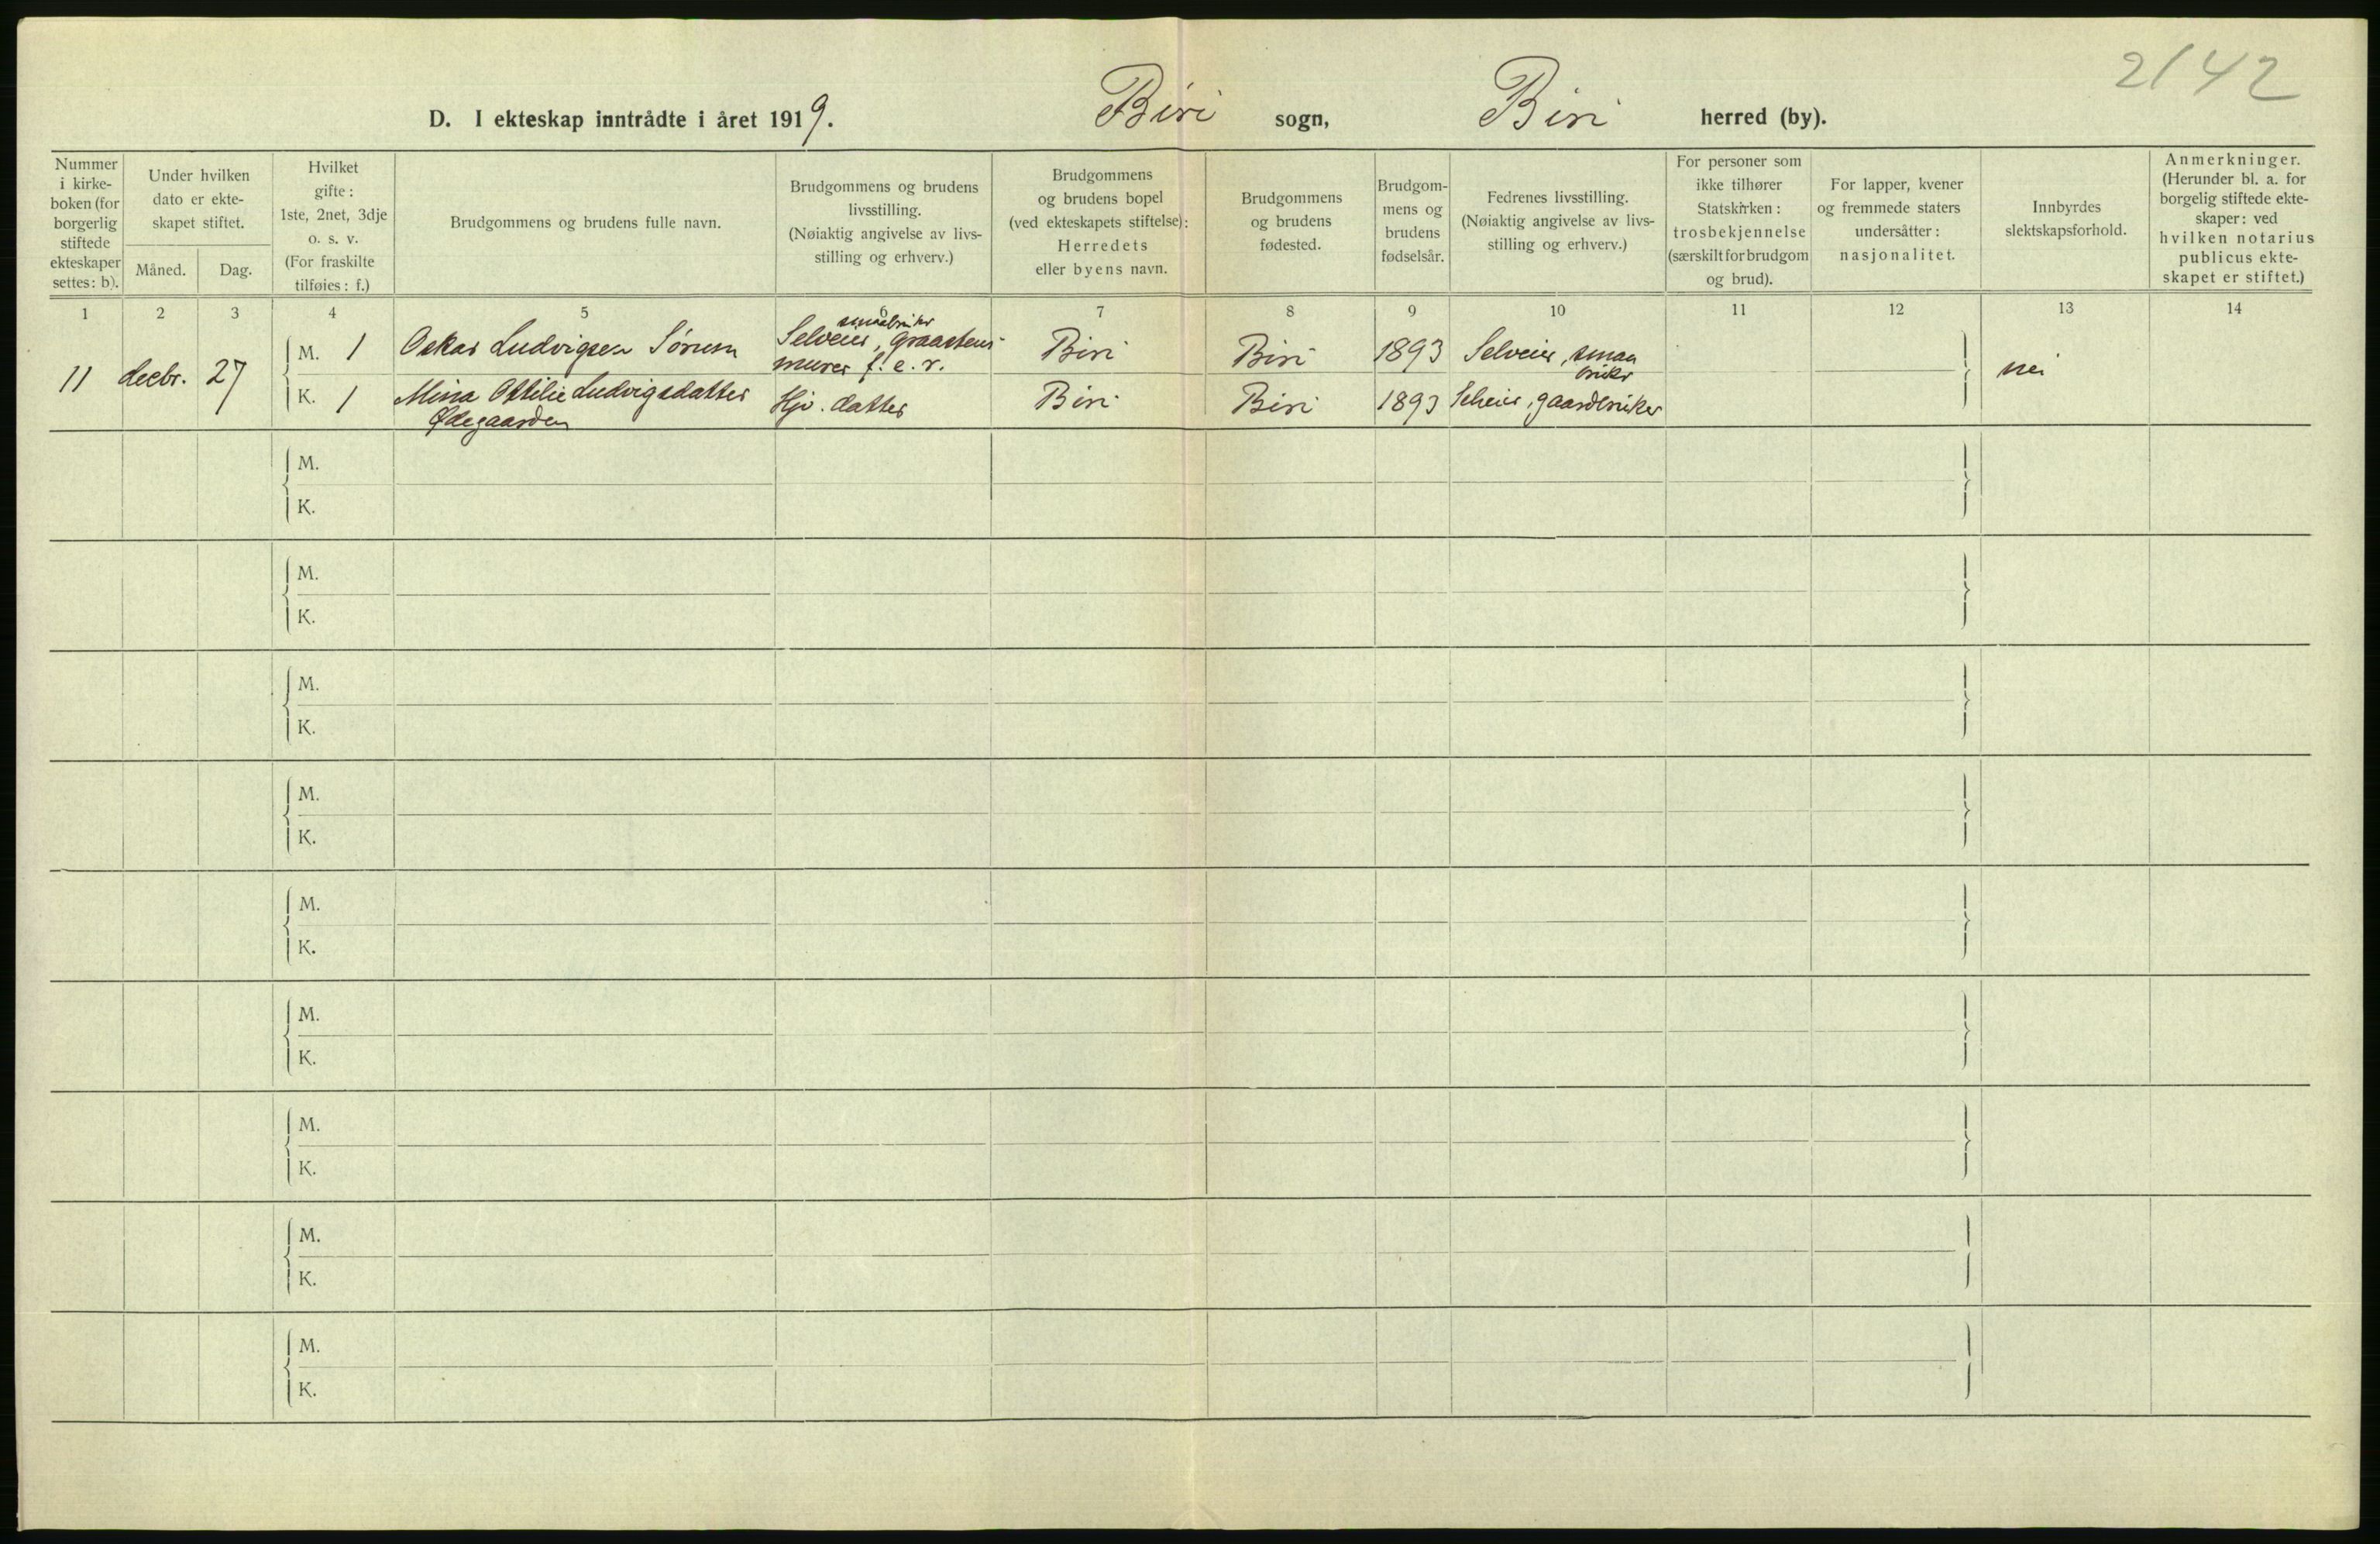 2142
D. I ekteskap inntrådte i året 1919. Biri sogn, Biri herred (by).
Nummer i kirke-boken (for borgerlig stiftede ekteskaper settes: b).
Under hvilken dato er ekte-skapet stiftet.
Måned. Dag.
Hvilket gifte: 1ste, 2net, 3dje o. s. v. (For fraskilte tilføies: f.)
Brudgommens og brudens fulle navn.
Brudgommens og brudens livsstilling. (Nøiaktig angivelse av livs-stilling og erhverv.)
Brudgommens og brudens bopel (ved ekteskapets stiftelse): Herredets eller byens navn.
Brudgommens og brudens fødested.
Brudgom-mens og brudens fødselsår.
Fedrenes livsstilling. (Nøiaktig angivelse av livs-stilling og erhverv.)
For personer som ikke tilhører Statskirken: trosbekjennelse (særskilt for brudgom og brud).
For lapper, kvener og fremmede staters undersåtter: nasjonalitet.
Innbyrdes slektskapsforhold.
Anmerkninger. (Herunder bl. a. for borgelig stiftede ekte-skaper: ved hvilken notarius publicus ekte-skapet er stiftet.)
1 2 3 4 5 6 7 8 9 10 11 12 13 14
11 decbr. 27
M. 1 Oskar Ludvigsen Sørum Selveier, smaabruker graastens-murer f. e. r. Biri Biri 1893 Selveier, smaabruker nei
K. 1 Mina Ottilie Ludvigsdatter Ødegaarden Hjv. datter Biri Biri 1893 Selveier, gaardbruker
M.
K.
M.
K.
M.
K.
M.
K.
M.
K.
M.
K.
M.
K.
M.
K.
M.
K.